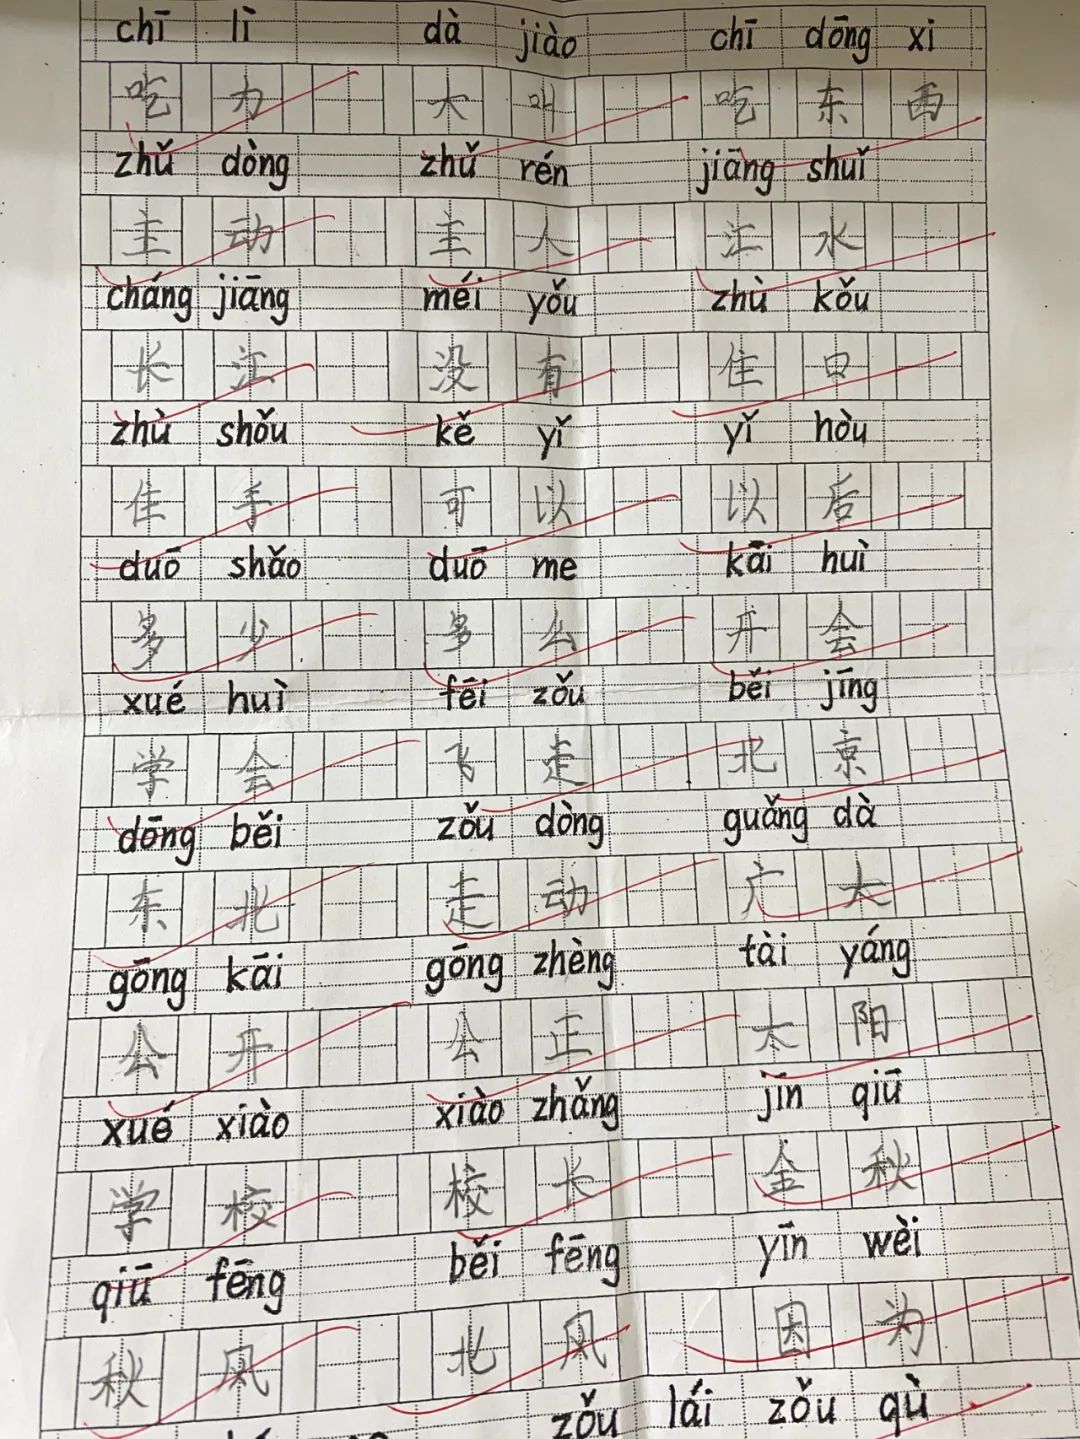 chī lì dà jiào chī dōng xi
吃力 大叫 吃东西
zhǔ dòng zhǔ rén jiāng shuǐ
主动 主人 江水
cháng jiāng méi yǒu zhù kǒu
长江 没有 住口
zhù shǒu kě yǐ yǐ hòu
住手 可以 以后
duō shǎo duō me kāi huì
多少 多么 开会
xué huì fēi zǒu běi jīng
学会 飞走 北京
dōng běi zǒu dòng guǎng dà
东北 走动 广大
gōng kāi gōng zhèng tài yáng
公开 公正 太阳
xué xiào xiào zhǎng jīn qiū
学校 校长 金秋
qiū fēng běi fēng yīn wèi
秋风 北风 因为
zǒu lái zǒu qù